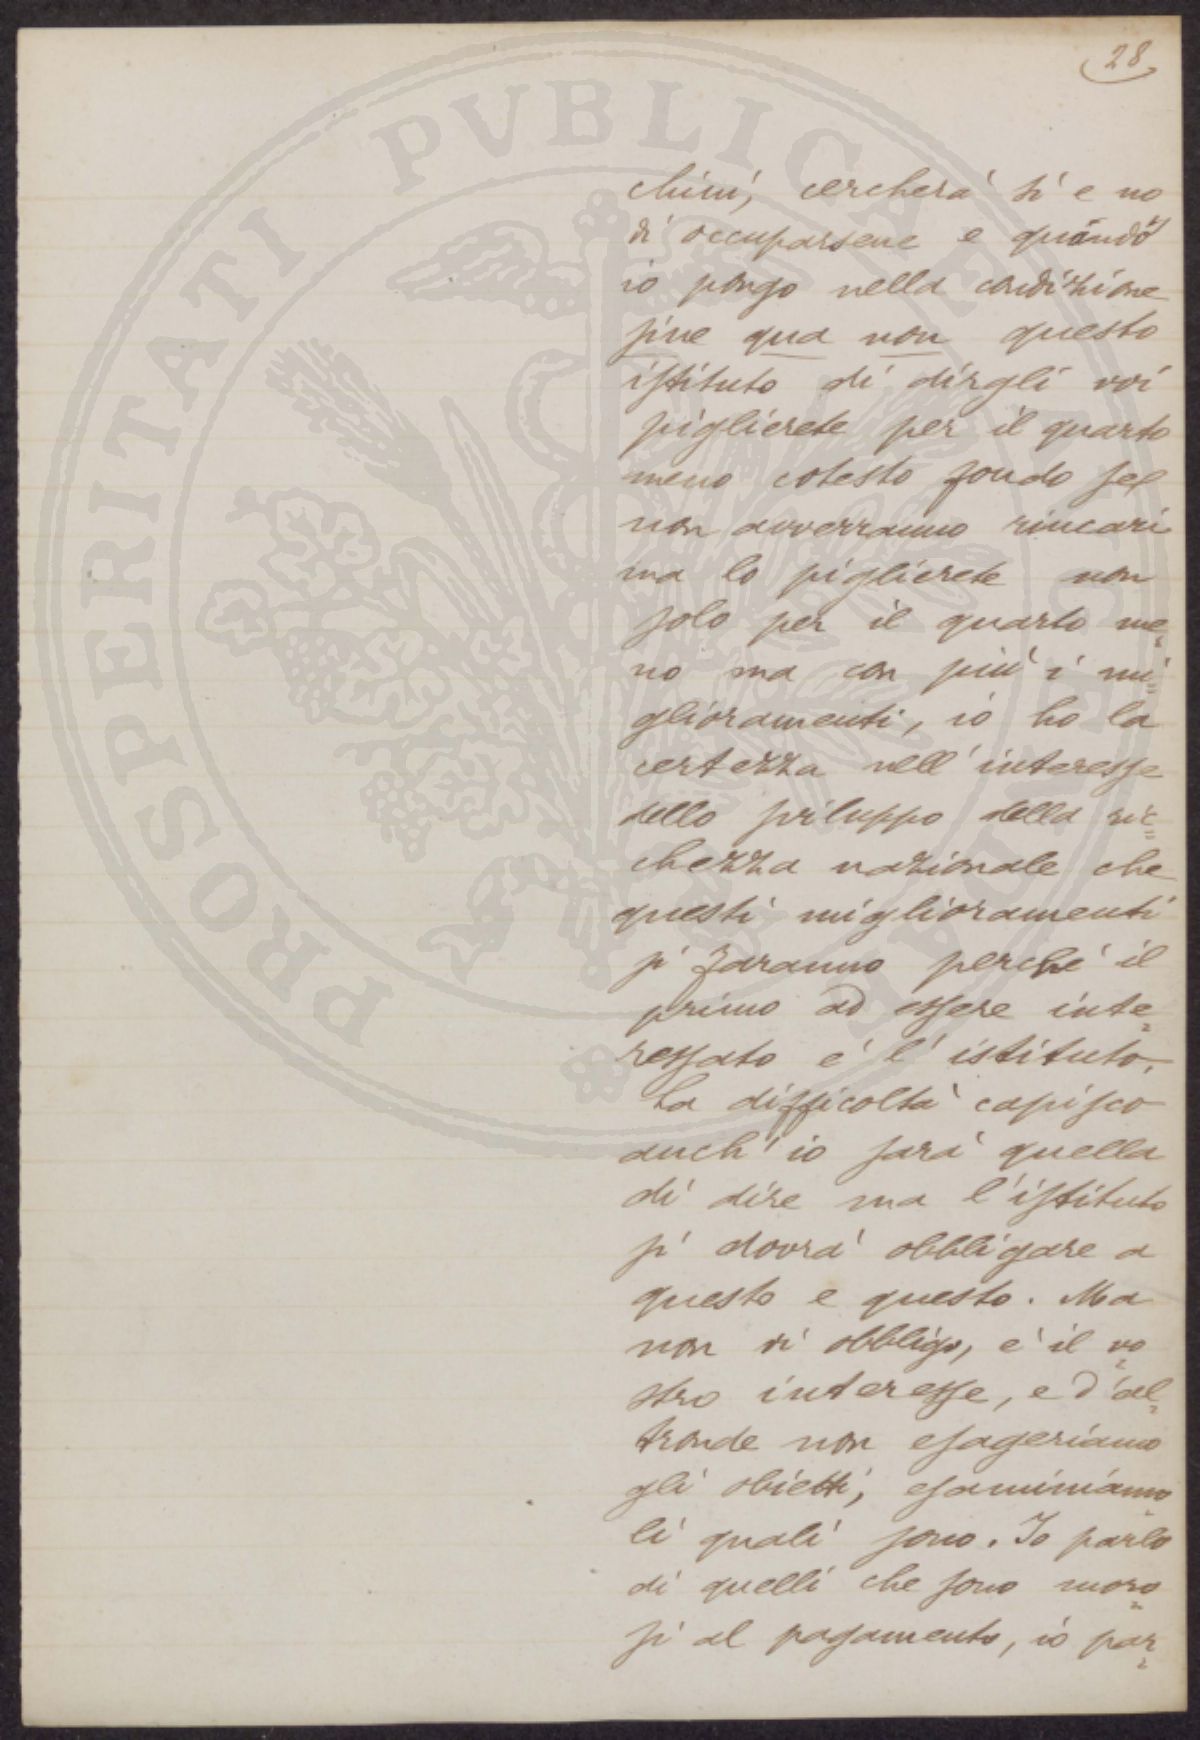 28
chini, cercherà sì e no
di occuparsene e quando
io pongo nella condizione
sine qua non questo
istituto di dirgli voi
piglierete per il quarto
meno cotesto fondo se
non avverranno rincari
ma lo piglierete non
solo per il quarto me=
no ma con più i mi=
glioramenti, io ho la
certezza nell'interesse
dello sviluppo della ric=
chezza nazionale che
questi miglioramenti
si faranno perché il
primo ad essere inte=
ressato è l'istituto.
La difficoltà capisco
anch'io sarà quella
di dire ma l'istituto
si dovrà obbligare a
questo e questo. Ma
non vi obbligo, è il vo=
stro interesse, e d'al=
tronde non esageriamo
gli obietti, esaminiamo=
li quali sono. Io parlo
di quelli che sono moro=
si al pagamento, io par=
PROSPERITATI PVBLICAE AVGENDAE